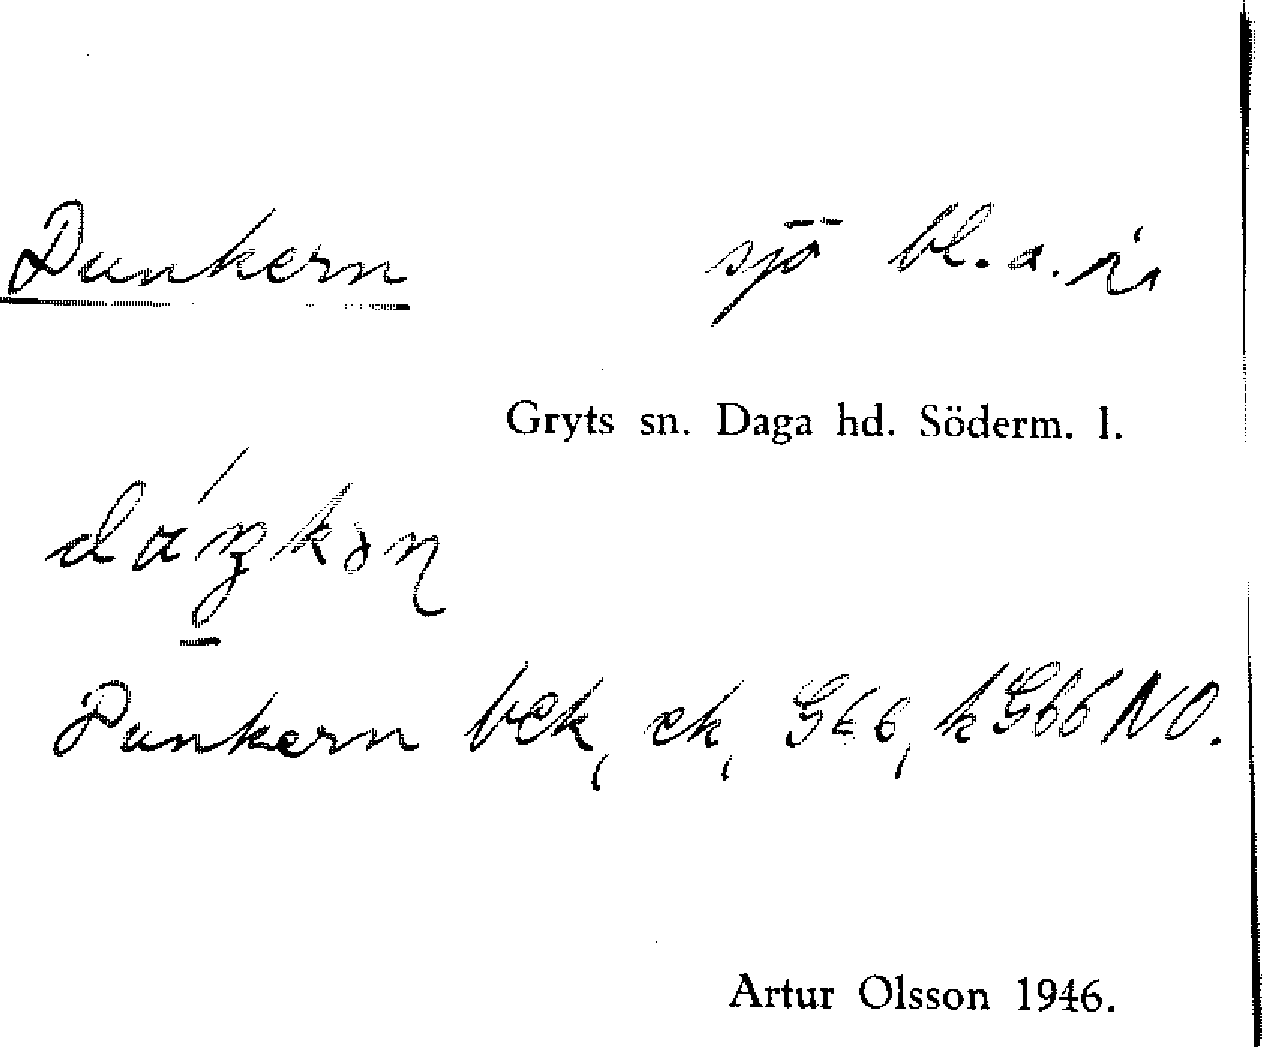 Dunkern sjö bl. a. i
Gryts sn. Daga hd. Söderm. l.
Dunkern bek, ek, Gbb, hGbb NO.
Artur Olsson 1946.